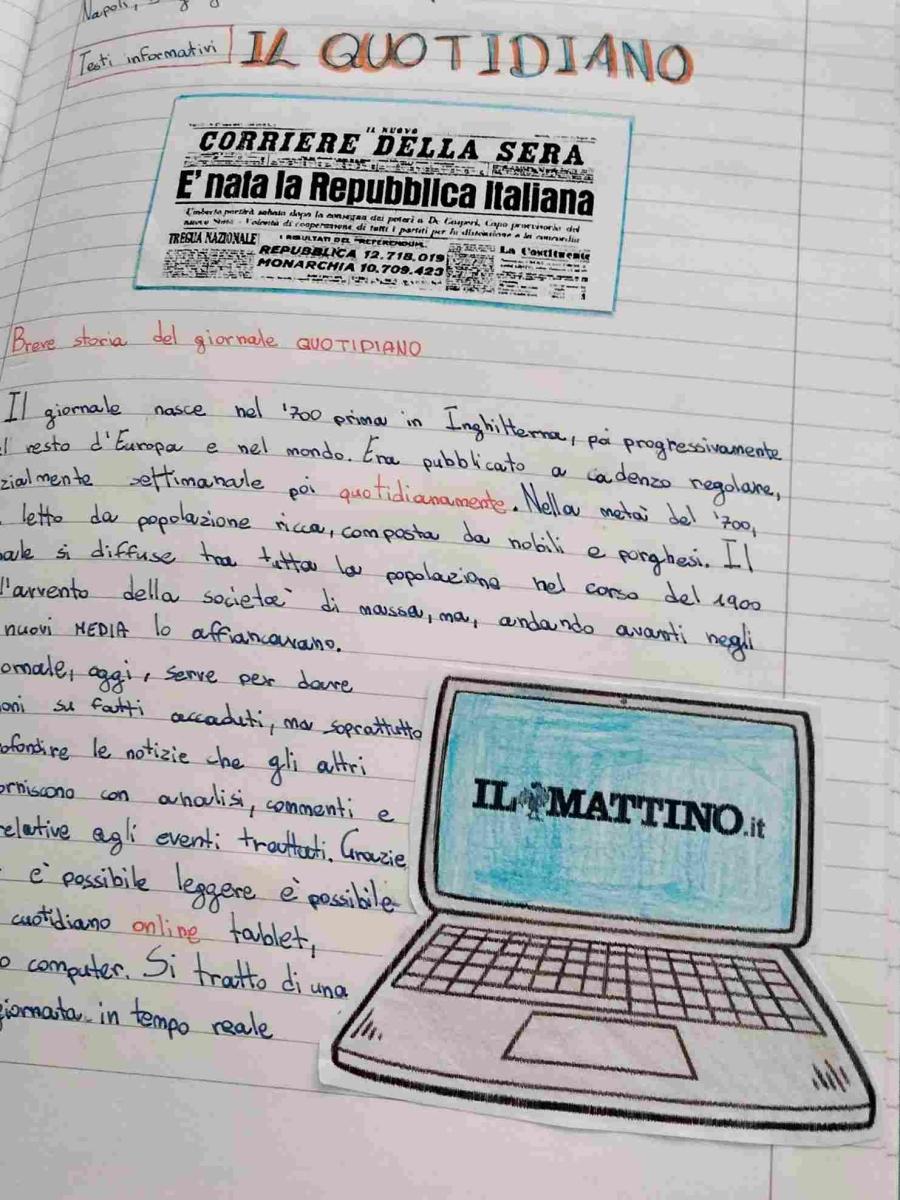 Napoli,
Testi informativi
IL QUOTIDIANO
IL NUOVO
CORRIERE DELLA SERA
E' nata la Repubblica Italiana
Umberto partirà subito dopo la consegna dei poteri a De Gasperi, Capo provvisorio del
nuovo Stato - Volontà di cooperazione di tutti i partiti per la distensione e la concordia
TREGUA NAZIONALE
I RISULTATI DEL "REFERENDUM"
REPUBBLICA 12.718.019
MONARCHIA 10.709.423
La Costituente
Breve storia del giornale QUOTIDIANO
Il giornale nasce nel '700 prima in Inghilterra, poi progressivamente
l resto d'Europa e nel mondo. Era pubblicato a cadenza regolare,
zialmente settimanale poi quotidianamente. Nella metà del '700,
letto da popolazione ricca, composta da nobili e borghesi. Il
nale si diffuse tra tutta la popolazione nel corso del 1900
l'avvento della società di massa, ma, andando avanti negli
nuovi MEDIA lo affiancavano.
ornale, oggi, serve per dare
oni su fatti accaduti, ma soprattutto
ofondire le notizie che gli altri
orniscono con analisi, commenti e
relative agli eventi trattati. Grazie
è possibile leggere è possibile
cuotidiano online tablet,
o computer. Si tratto di una
giornata in tempo reale
IL MATTINO.it